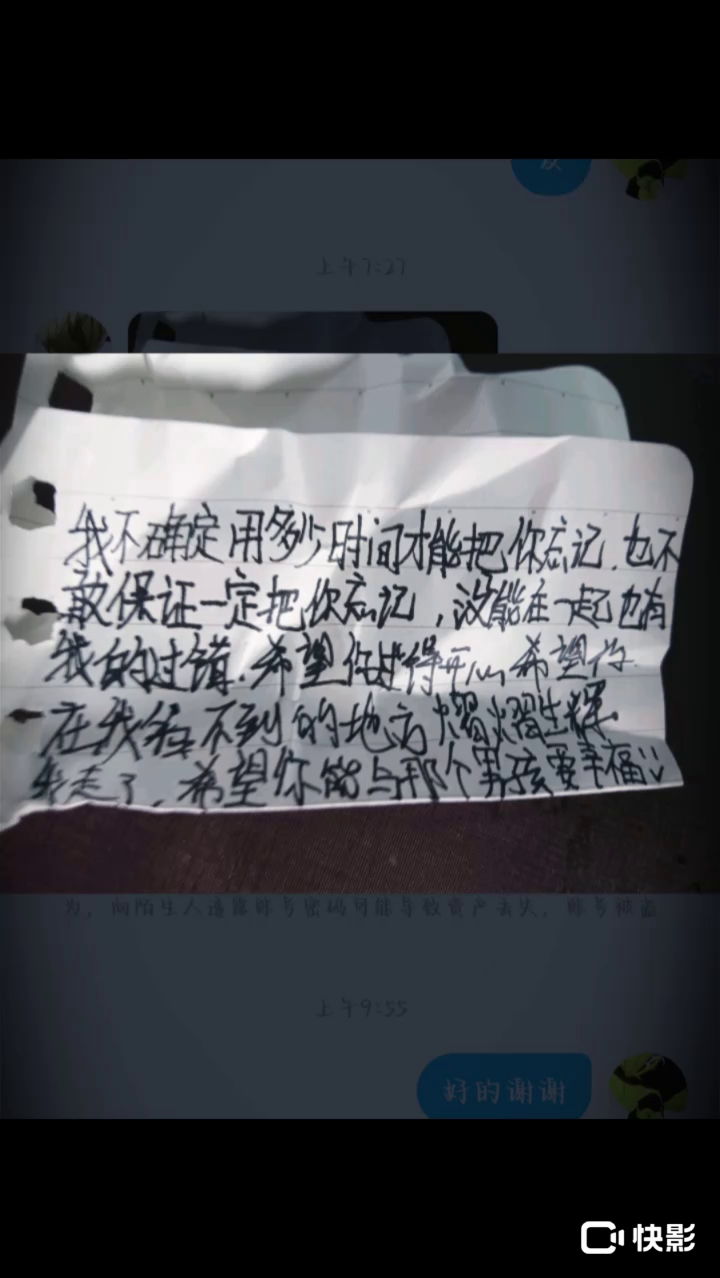 上午7:27
我不确定用多少时间才能把你忘记.也不
敢保证一定把你忘记,没能在一起也有
我的过错.希望你过得开心希望你
在我看不到的地方熠熠生辉.
我走了.希望你能与那个男孩要幸福
为,向陌生人透露账号密码可能导致资产丢失,账号被盗
上午9:55
好的谢谢
快影